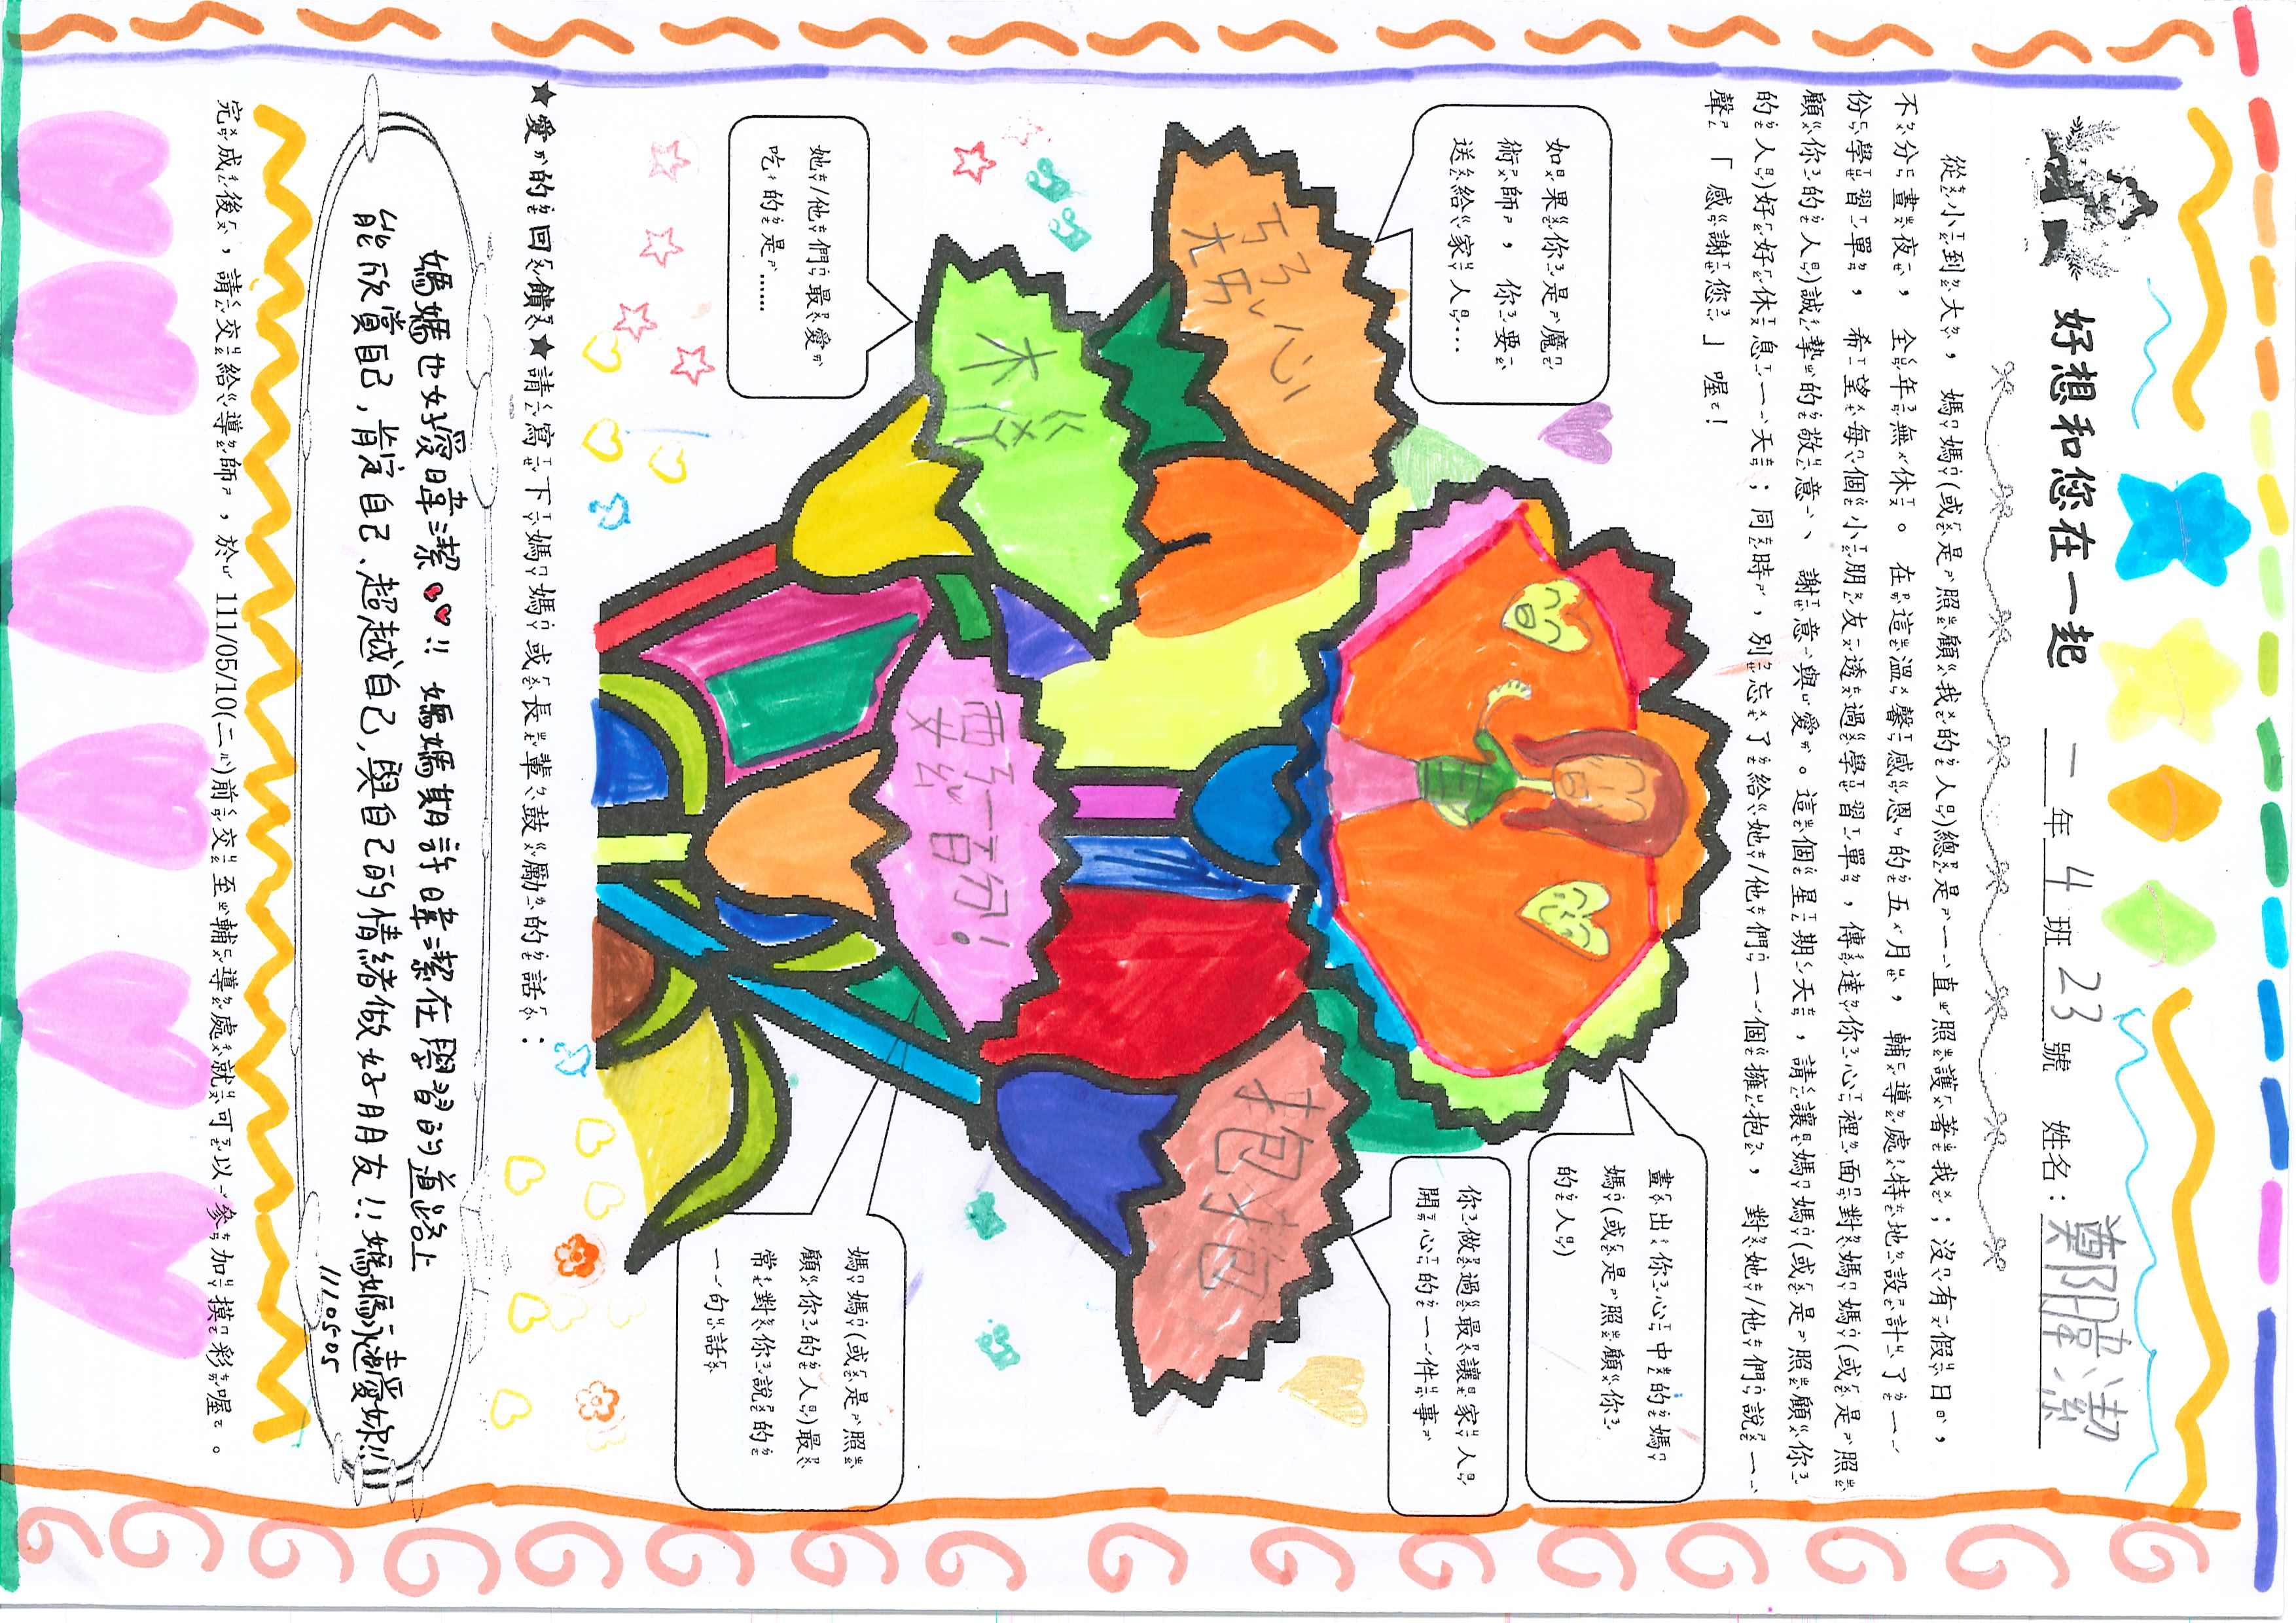 好想和您在一起
一年4班23號 姓名：鄭暐潔
從小到大，媽媽(或是照顧我的人)總是一直照護著我；沒有假日，
不分晝夜，全年無休。在這溫馨感恩的五月，輔導處特地設計了一
份學習單，希望每個小朋友透過學習單，傳達你心裡面對媽媽(或是照
顧你的人)誠摯的敬意、謝意與愛。這個星期天，請讓媽媽(或是照顧你
的人)好好休息一天；同時，別忘了給她/他們一個擁抱，對她/他們說一
聲「感謝您」喔！
如果你是魔
術師，你要
送給家人…
畫出你心中的媽
媽(或是照顧你
的人)
你做過最讓家人
開心的一件事
她/他們最愛
吃的是……
媽媽(或是照
顧你的人)最
常對你說的
一句話
ㄎㄞ心
木瓜
要考一百分！
抱抱
★愛的回饋★請寫下媽媽或長輩鼓勵的話：
媽媽也好愛暐潔!! 媽媽期許暐潔在學習的道路上
能欣賞自己，肯定自己、超越自己，與自己的情緒做好朋友!!媽媽永遠愛妳!!!
1110505
完成後，請交給導師，於 111/05/10(二)前交至輔導處就可以參加摸彩喔。